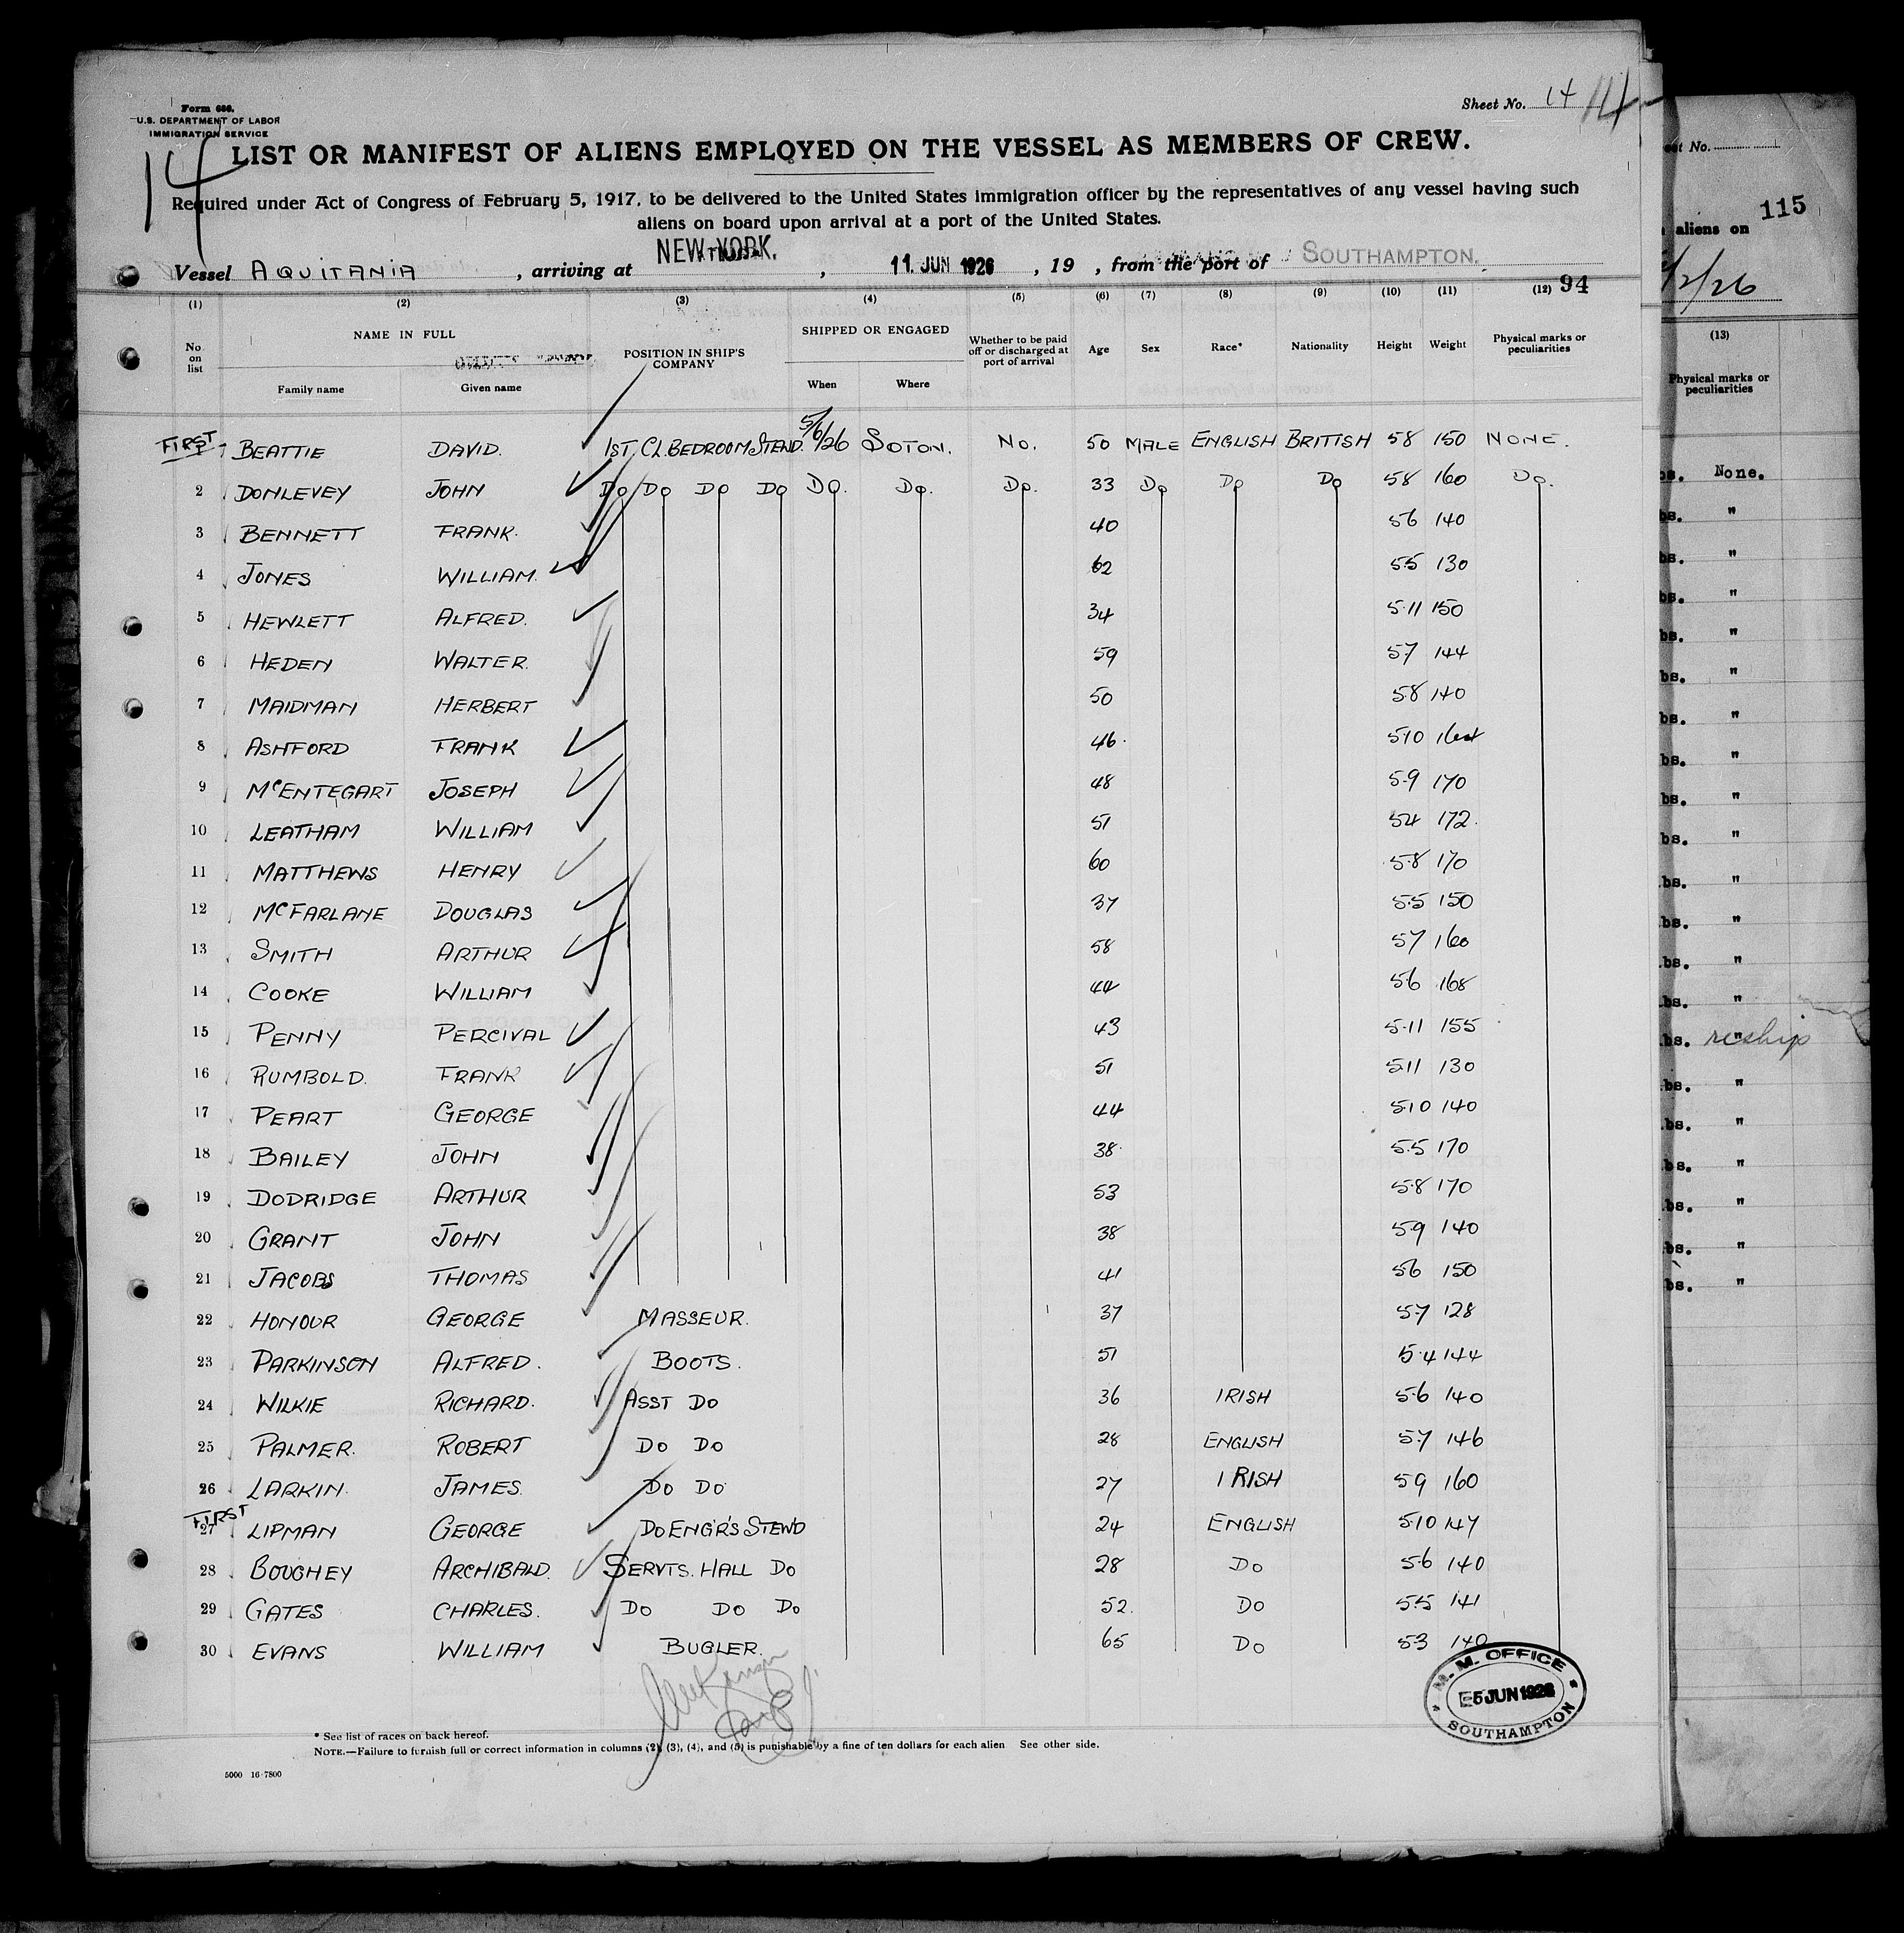 Form 686.
U.S. DEPARTMENT OF LABOR
IMMIGRATION SERVICE
Sheet No. 14
14
LIST OR MANIFEST OF ALIENS EMPLOYED ON THE VESSEL AS MEMBERS OF CREW.
Required under Act of Congress of February 5, 1917, to be delivered to the United States immigration officer by the representatives of any vessel having such
aliens on board upon arrival at a port of the United States.
Vessel AQUITANIA, arriving at NEW-YORK., 11 JUN 1926, 19 , from the port of SOUTHAMPTON.
94
(1) (2) (3) (4) (5) (6) (7) (8) (9) (10) (11) (12)
No. on list NAME IN FULL Family name Given name POSITION IN SHIP'S COMPANY SHIPPED OR ENGAGED When Where Whether to be paid off or discharged at port of arrival Age Sex Race* Nationality Height Weight Physical marks or peculiarities
FIRST BEATTIE DAVID. 1ST. CL. BEDROOM STEWD. 5/6/26 SOTON. NO. 50 MALE ENGLISH BRITISH 58 150 NONE.
2 DONLEVEY JOHN DO DO DO DO DO. DO. DO. 33 DO DO DO 58 160 DO.
3 BENNETT FRANK. 40 56 140
4 JONES WILLIAM. 62 55 130
5 HEWLETT ALFRED. 34 5·11 150
6 HEDEN WALTER. 59 57 144
7 MAIDMAN HERBERT 50 58 140
8 ASHFORD FRANK 46. 510 164
9 McENTEGART JOSEPH 48 5·9 170
10 LEATHAM WILLIAM 51 54 172.
11 MATTHEWS HENRY 60 5·8 170
12 McFARLANE DOUGLAS 37 5·5 150
13 SMITH ARTHUR 58 57 160
14 COOKE WILLIAM 44 56 168
15 PENNY PERCIVAL 43 5·11 155
16 RUMBOLD. FRANK 51 511 130
17 PEART GEORGE 44 510 140
18 BAILEY JOHN 38. 5·5 170
19 DODRIDGE ARTHUR 53 5·8 170
20 GRANT JOHN 38 59 140
21 JACOBS THOMAS 41 56 150
22 HONOUR GEORGE MASSEUR. 37 57 128
23 PARKINSON ALFRED. BOOTS. 51 5·4 144
24 WILKIE RICHARD. ASST DO 36 IRISH 5·6 140
25 PALMER. ROBERT DO DO 28 ENGLISH 57 146
26 LARKIN. JAMES DO DO 27 IRISH 59 160
FIRST
27 LIPMAN GEORGE DO ENGR'S STEWD 24 ENGLISH 510 147
28 BOUGHEY ARCHIBALD. SERVTS. HALL DO 28 DO 5·6 140
29 GATES CHARLES. DO DO DO 52. DO 5·5 141
30 EVANS WILLIAM BUGLER. 65 DO 53 140
M. M. OFFICE
5 JUN 1926
SOUTHAMPTON
* See list of races on back hereof.
NOTE.—Failure to furnish full or correct information in columns (2), (3), (4), and (5) is punishable by a fine of ten dollars for each alien See other side.
5000 16-7800
No.
115
aliens on
2/26
(13)
Physical marks or
peculiarities
bs. None.
bs. "
bs. "
bs. "
bs. "
bs. "
bs. "
bs. "
bs. "
bs. "
bs. "
bs. "
bs. "
bs. "
bs. " reship
bs. "
bs. "
bs. "
bs. "
bs. "
bs. "